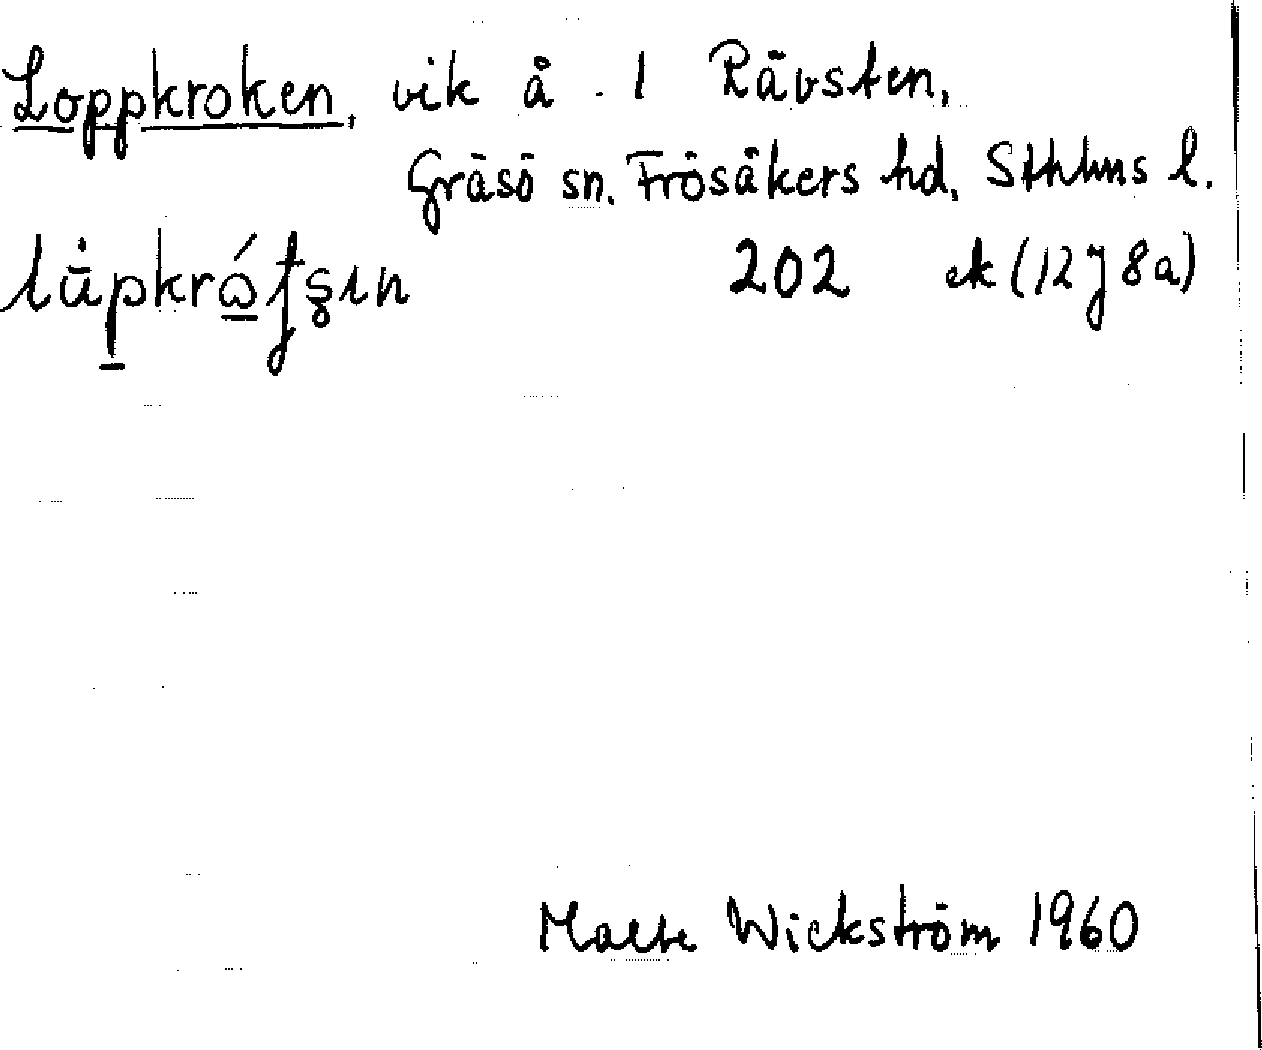 Loppkroken, vik å 1 Rävsten,
Gräsö sn. Frösåkers hd. Sthlms l.
202 ek (12 J 8a)
Malte Wickström 1960